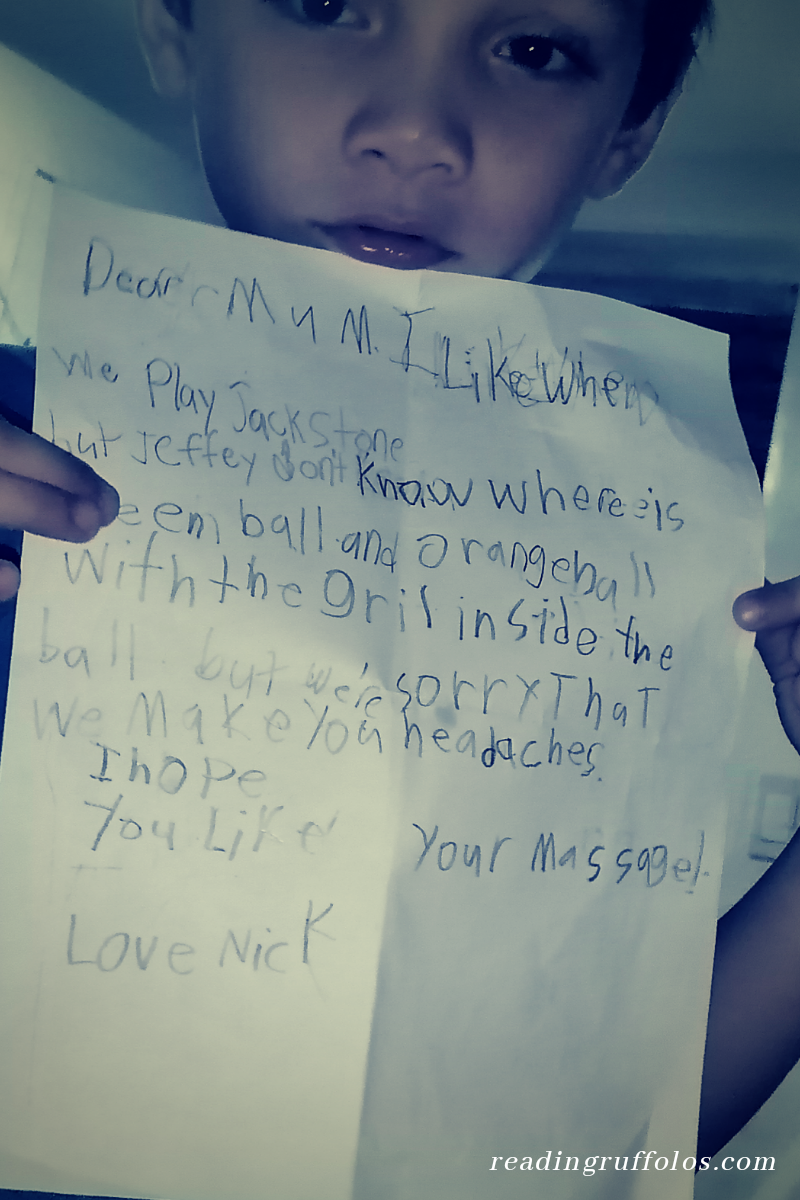 Dear Mum. I Like When
we Play Jack Stone
but Jeffey don't Know where is
ball and Orange ball
With the gril inside the
ball but we're sorry That
We Make You headaches.
I hope
You Like Your Massage!
Love Nick
readingruffolos.com